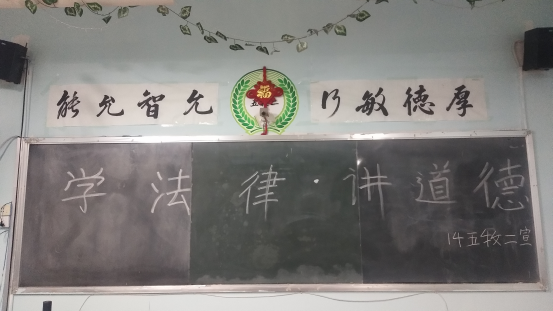 能允智允
福
行敏德厚
学法律讲道德
14五牧二宣